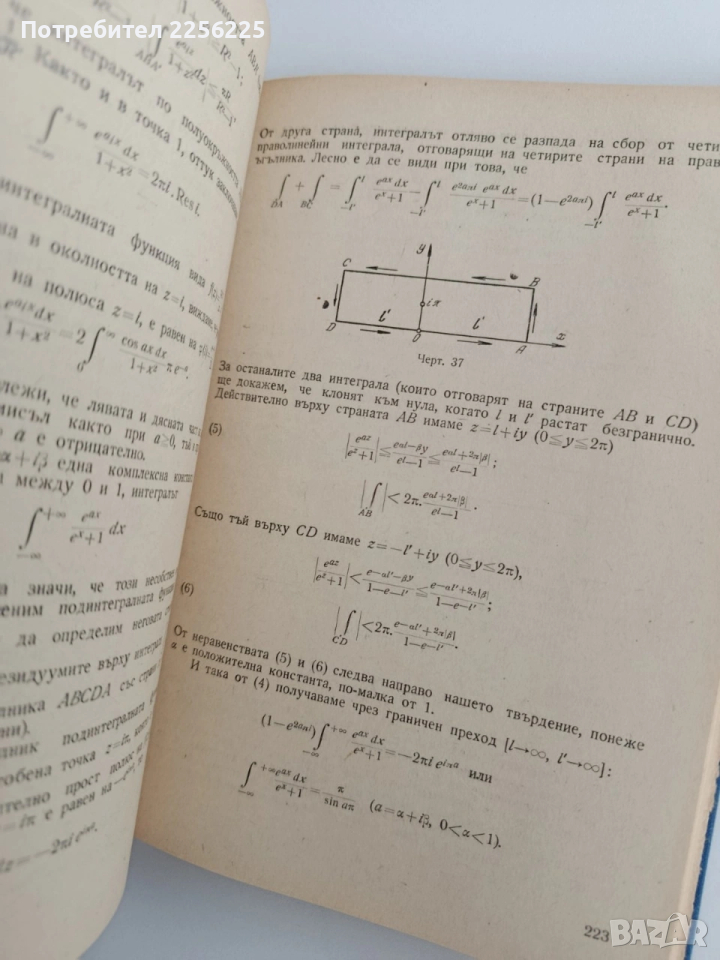 Потребител 2256225
ъзността ABA'
че интегралът по полуокръжността
Както и в точка 1, оттук заключаваме
∫_{-∞}^{+∞} e^{aix} dx / 1+x² = 2πi. Res i.
интегралната функция вида
на в околността на z=i,
на полюса z=i, е равен на
e^{aix}dx / 1+x² = 2 ∫_0^{∞} cos ax dx / 1+x² π e^{-a}.
лежи, че лявата и дясната
мисъл както при a≥0,
a е отрицателно.
α+iβ една комплексна
между 0 и 1, интегралът
∫_{-∞}^{+∞} e^{ax} / e^x+1 dx
а значи, че този
меним подинтегралната
да определим неговата
резидуумите върху
лника ABCDA със
ни).
дник подинтегралната
собена точка z=iπ,
ително прост полюс
=iπ е равен на
dz=−2πi e^{aiπ}.
От друга страна, интегралът отляво се разпада на сбор от чети
праволинейни интеграла, отговарящи на четирите страни на прав
ъгълника. Лесно е да се види при това, че
∫_{DA} + ∫_{BC} = ∫_{-l'}^{l} e^{ax} dx / e^x+1 − ∫_{-l'}^{l} e^{2aπi} e^{ax} dx / e^x+1 = (1−e^{2aπi}) ∫_{-l'}^{l} e^{ax} dx / e^x+1 .
y
C
B
iπ
l'
l'
D
0
A
x
Черт. 37
За останалите два интеграла (които отговарят на страните AB и CD)
ще докажем, че клонят към нула, когато l и l' растат безгранично.
Действително върху страната AB имаме z=l+iy (0≦y≦2π)
(5)
|e^{az} / e^z+1| ≤ e^{αl−βy} / e^l−1 ≤ e^{αl+2π|β|} / e^l−1 ;
|∫_{AB}| < 2π. e^{αl+2π|β|} / e^l−1 .
Също тъй върху CD имаме z=−l'+iy (0≦y≦2π),
(6)
|e^{az} / e^z+1| < e^{−αl'−βy} / 1−e^{−l'} ≤ e^{−αl'+2π|β|} / 1−e^{−l'} ;
|∫_{CD}| <2π. e^{−αl'+2π|β|} / 1−e^{−l'} .
От неравенствата (5) и (6) следва направо нашето твърдение, понеже
α е положителна константа, по-малка от 1.
И така от (4) получаваме чрез граничен преход [l→∞, l'→∞]:
(1−e^{2aπi}) ∫_{-∞}^{+∞} e^{ax} dx / e^x+1 = −2πi e^{iπa} или
∫_{-∞}^{+∞} e^{ax} dx / e^x+1 = π / sin aπ (a=α+iβ, 0<α<1).
223
BAZAR